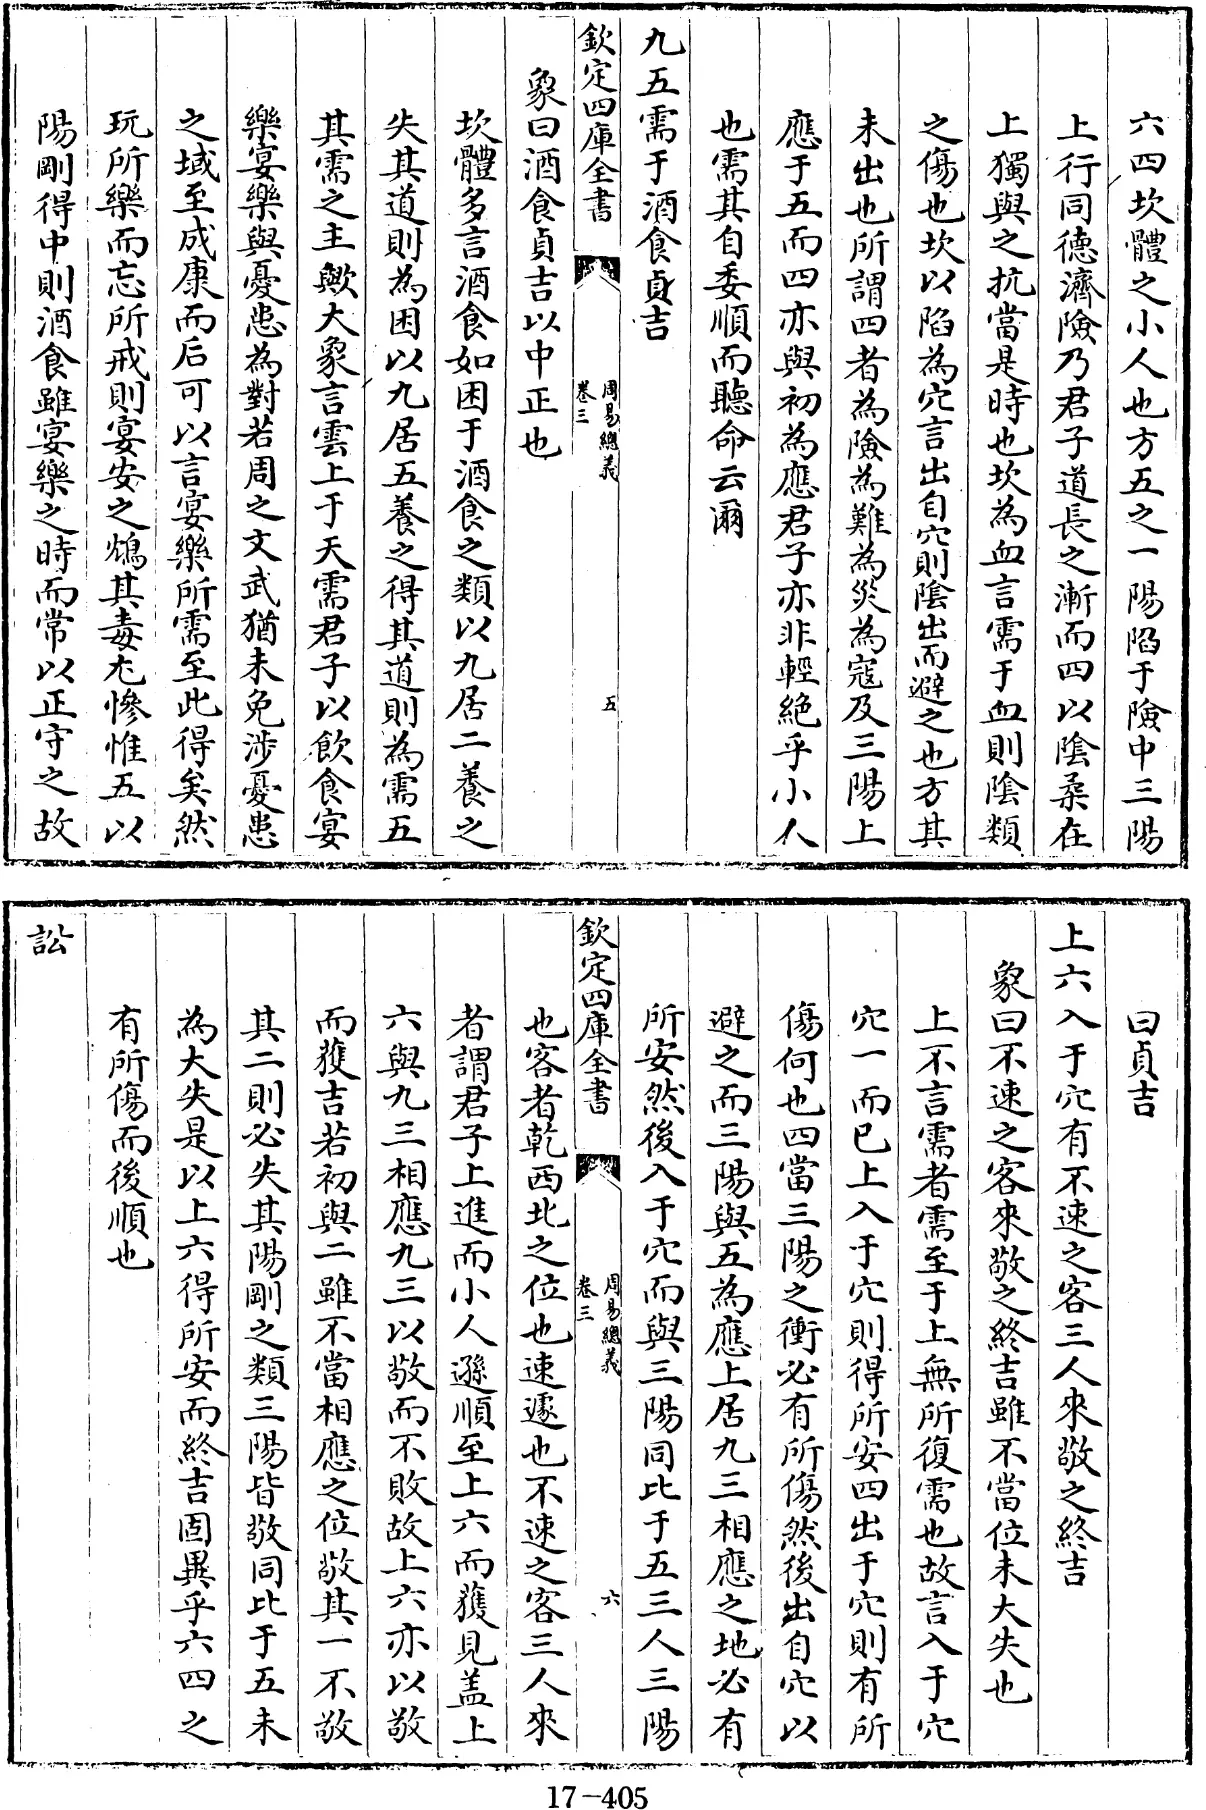 六四坎體之小人也方五之一陽陷于險中三陽
上行同德濟險乃君子道長之漸而四以陰柔在
上獨與之抗當是時也坎為血言需于血則陰類
之傷也坎以陷為穴言出自穴則陰出而避之也方其
未出也所謂四者為險為難為災為寇及三陽上
應于五而四亦與初為應君子亦非輕絶乎小人
也需其自委順而聽命云爾
九五需于酒食貞吉
欽定四庫全書
周易總義
卷三
五
象曰酒食貞吉以中正也
坎體多言酒食如困于酒食之類以九居二養之
失其道則為困以九居五養之得其道則為需五
其需之主歟大象言雲上于天需君子以飲食宴
樂宴樂與憂患為對若周之文武猶未免涉憂患
之域至成康而后可以言宴樂所需至此得矣然
玩所樂而忘所戒則宴安之鴆其毒尤慘惟五以
陽剛得中則酒食雖宴樂之時而常以正守之故
曰貞吉
上六入于穴有不速之客三人來敬之終吉
象曰不速之客來敬之終吉雖不當位未大失也
上不言需者需至于上無所復需也故言入于穴
穴一而已上入于穴則得所安四出于穴則有所
傷何也四當三陽之衝必有所傷然後出自穴以
避之而三陽與五為應上居九三相應之地必有
所安然後入于穴而與三陽同比于五三人三陽
欽定四庫全書
周易總義
卷三
六
也客者乾西北之位也速遽也不速之客三人來
者謂君子上進而小人遜順至上六而獲見盖上
六與九三相應九三以敬而不敗故上六亦以敬
而獲吉若初與二雖不當相應之位敬其一不敬
其二則必失其陽剛之類三陽皆敬同比于五未
為大失是以上六得所安而終吉固異乎六四之
有所傷而後順也
訟
17-405